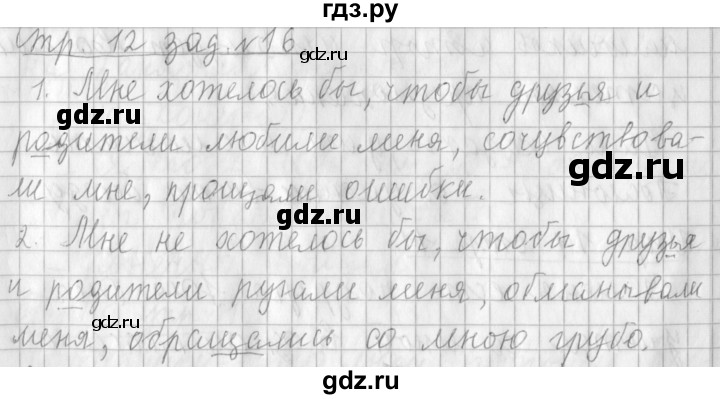 гдз.ру
стр. 12 зад. №16
gdz.ru
1. Мне хотелось бы, чтобы друзья и
родители любили меня, сочувствова-
gdz.ru
ли мне, прощали ошибки.
gdz.ru
2. Мне не хотелось бы, чтобы друзья
и родители ругали меня, обманывали
gdz.ru
меня, обращались со мною грубо.
gdz.ru